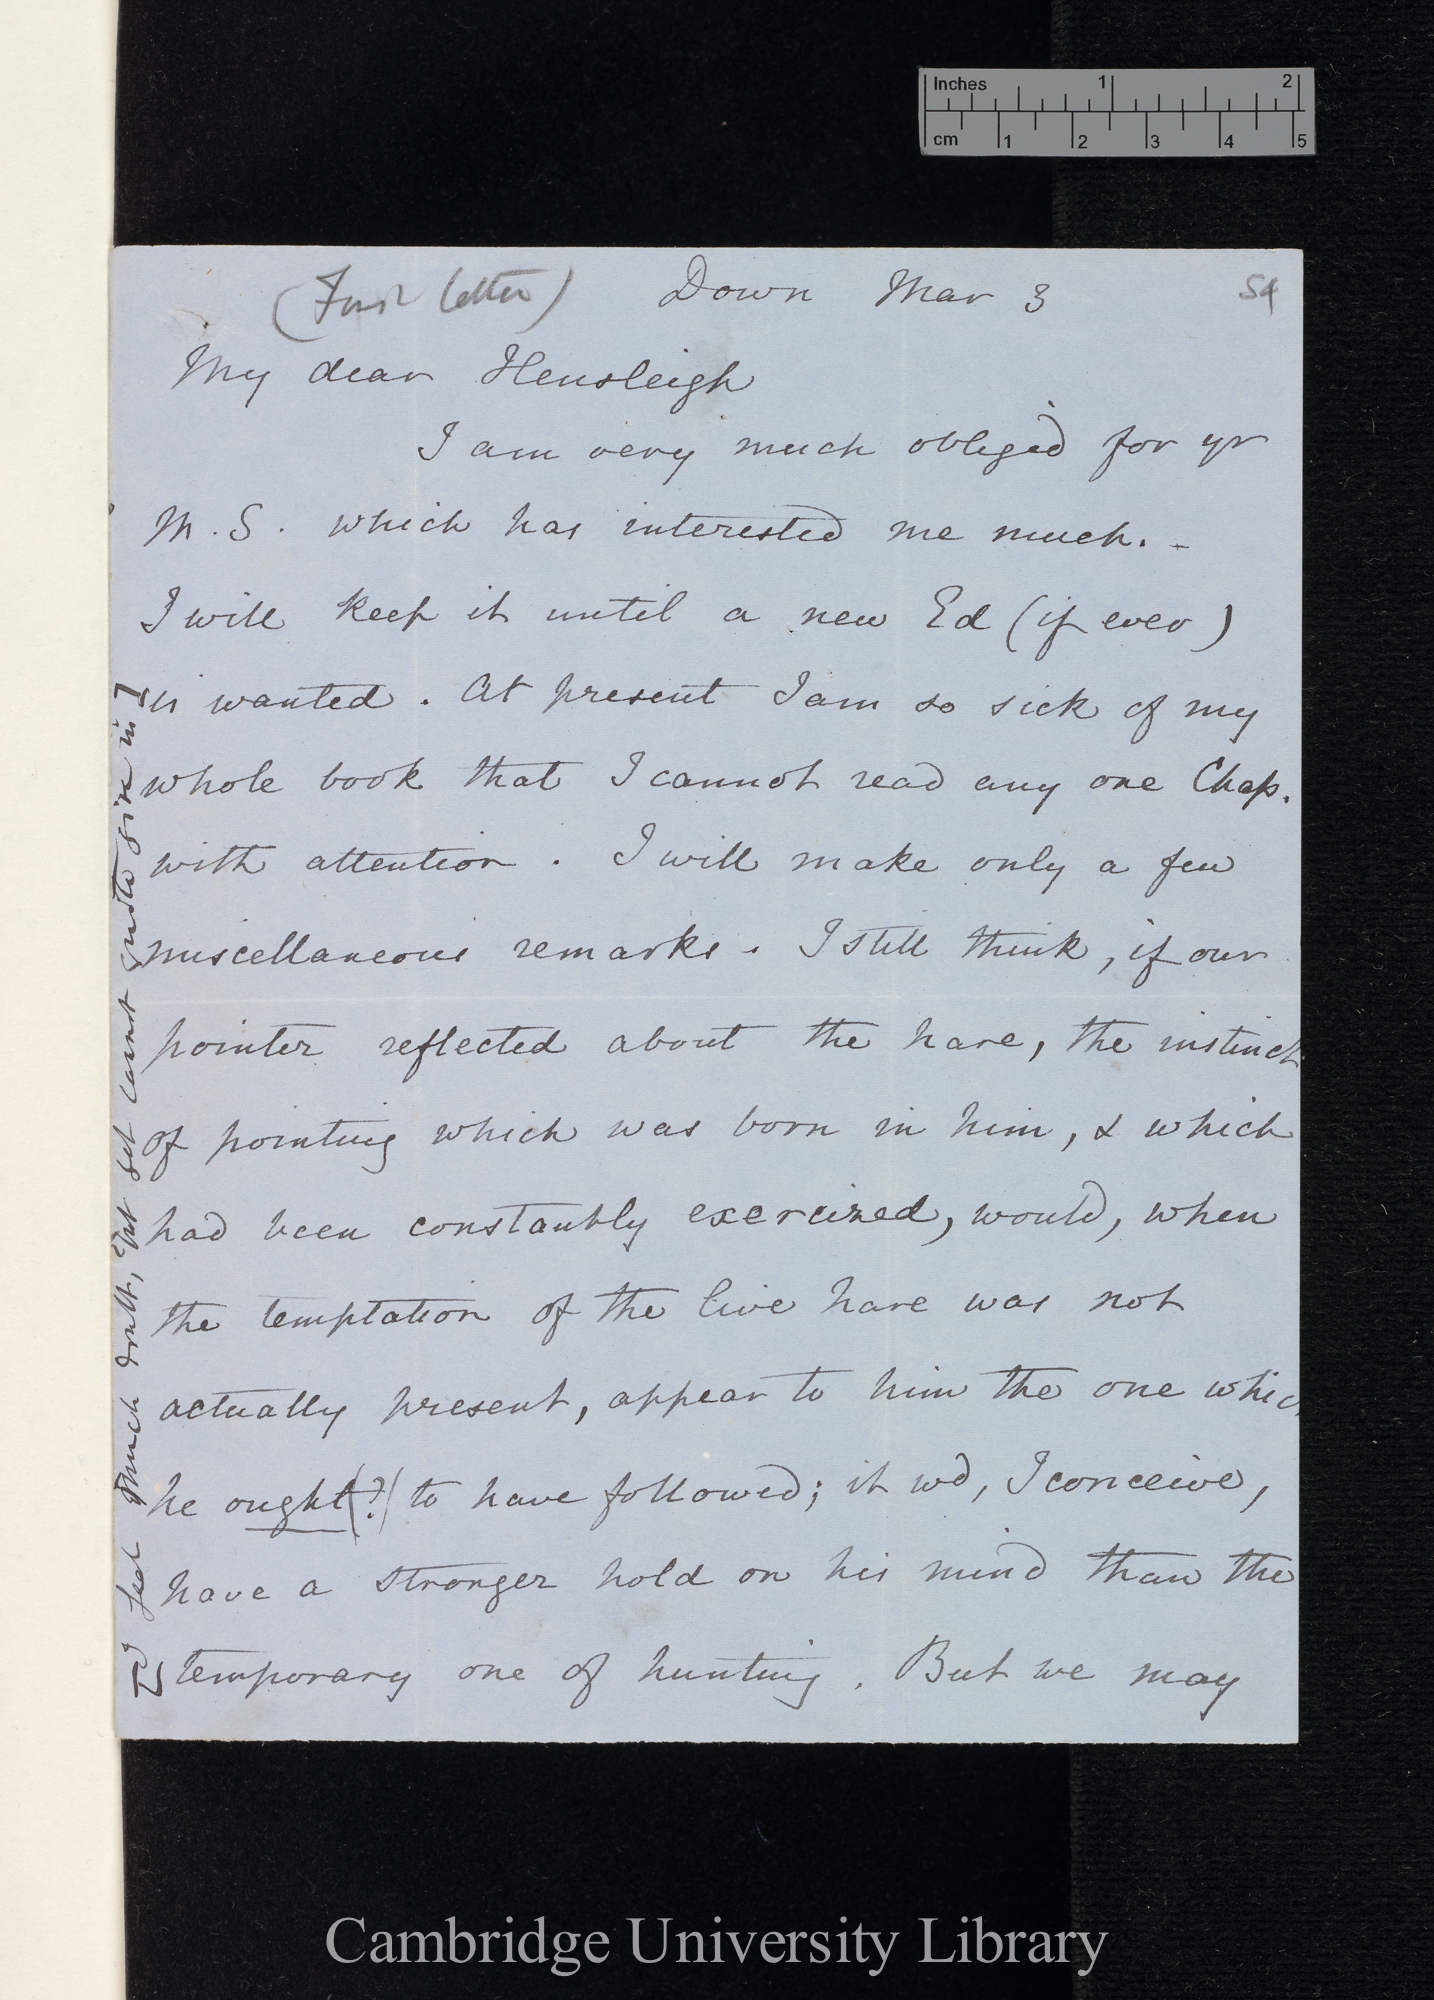 Inches 1 2
cm 1 2 3 4 5
(First letter) Down Mar 3 54
My dear Hensleigh
I am very much obliged for yr
M.S. which has interested me much. –
I will keep it until a new Ed (if ever)
is wanted. At present I am so sick of my
whole book that I cannot read any one Chap.
with attention. I will make only a few
miscellaneous remarks. I still think, if our
pointer reflected about the hare, the instinct
of pointing which was born in him, & which
had been constantly exercized, would, when
the temptation of the live hare was not
actually present, appear to him the one which
he ought(?) to have followed; it wd, I conceive,
have a stronger hold on his mind than the
temporary one of hunting. But we may
[I feel much doubt, but yet cannot quite give in]
Cambridge University Library